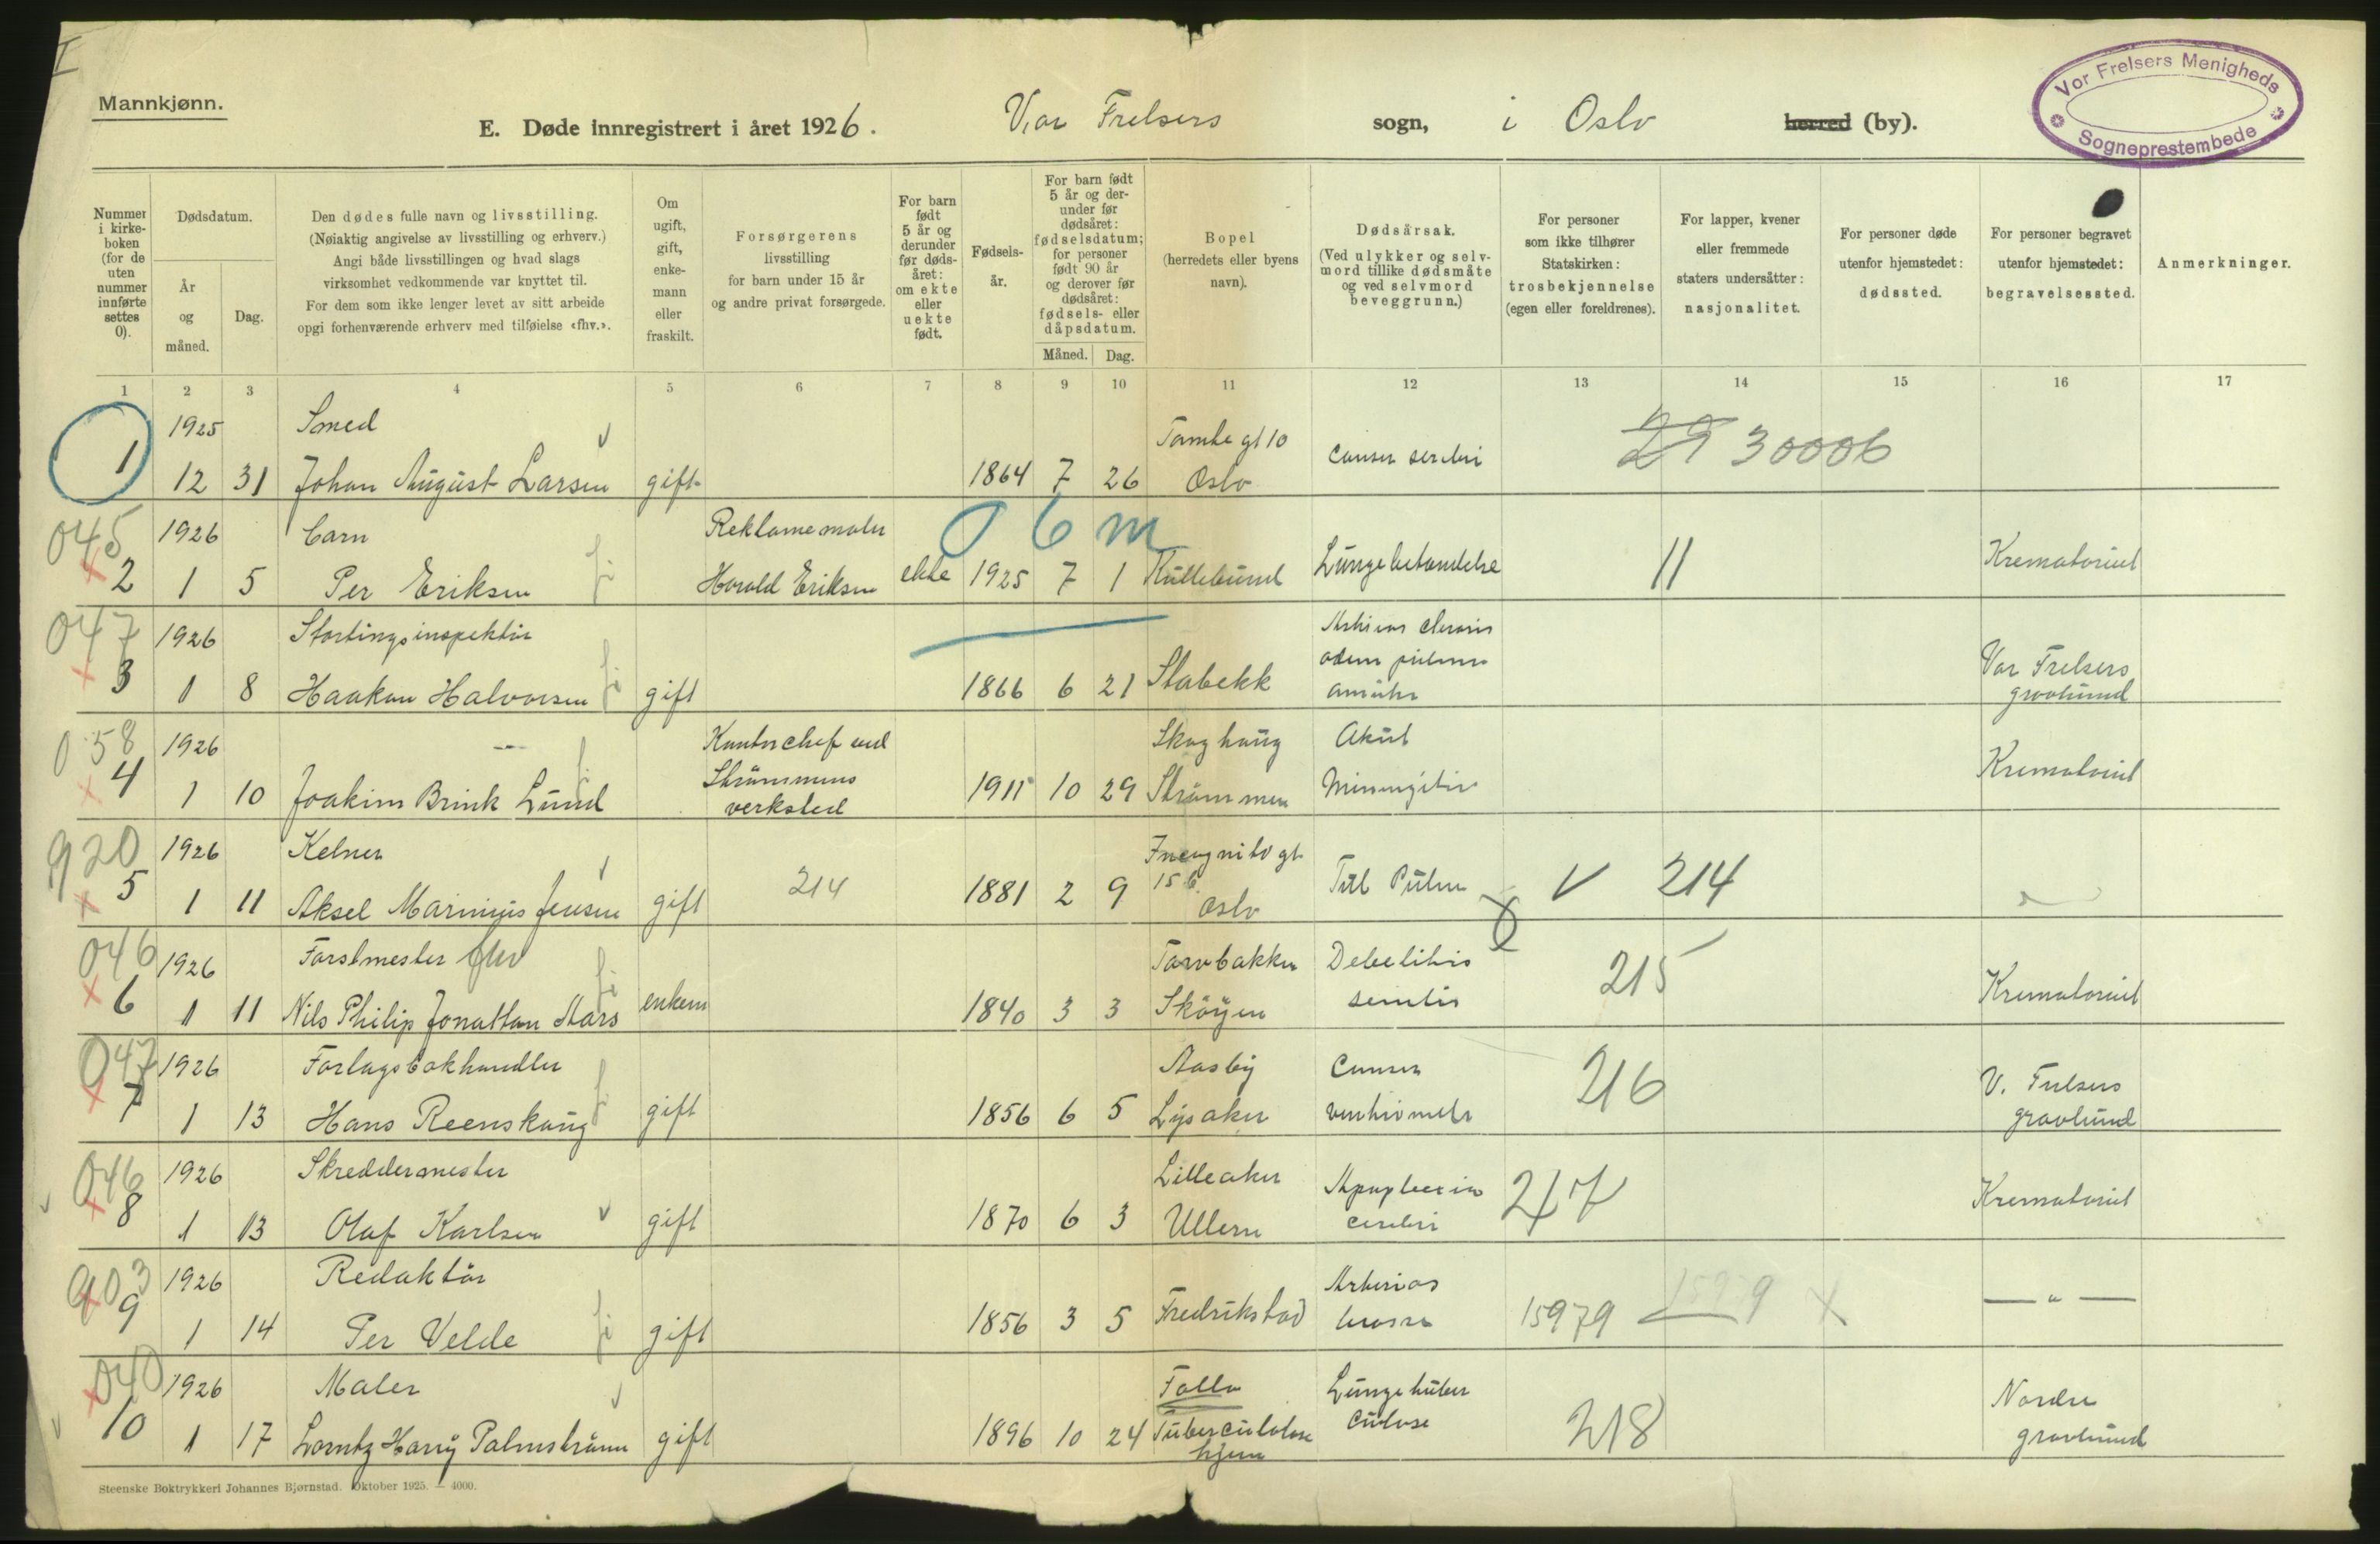 I
Mannkjønn.
E. Døde innregistrert i året 1926. Vor Frelsers sogn, i Oslo herred (by).
Vor Frelsers Menigheds
Sogneprestembede
Nummer i kirke-boken (for de uten nummer innførte settes 0).
Dødsdatum.
År og måned.
Dag.
Den dødes fulle navn og livsstilling.
(Nøiaktig angivelse av livsstilling og erhverv.)
Angi både livsstillingen og hvad slags
virksomhet vedkommende var knyttet til.
For dem som ikke lenger levet av sitt arbeide
opgi forhenværende erhverv med tilføielse «fhv.».
Om ugift, gift, enke-mann eller fraskilt.
Forsørgerens
livsstilling
for barn under 15 år
og andre privat forsørgede.
For barn født 5 år og derunder før døds-året: om ekte eller uekte født.
Fødsels-år.
For barn født 5 år og der-under før dødsåret: fødselsdatum; for personer født 90 år og derover før dødsåret: fødsels- eller dåpsdatum.
Måned. Dag.
Bopel
(herredets eller byens navn).
Dødsårsak.
(Ved ulykker og selv-mord tillike dødsmåte og ved selvmord beveggrunn.)
For personer som ikke tilhører Statskirken: trosbekjennelse (egen eller foreldrenes).
For lapper, kvener eller fremmede staters undersåtter: nasjonalitet.
For personer døde utenfor hjemstedet: dødssted.
For personer begravet utenfor hjemstedet: begravelsessted.
Anmerkninger.
1 2 3 4 5 6 7 8 9 10 11 12 13 14 15 16 17
1925 Smed Tomtegt 10
1 12 31 Johan August Larsen gift 1864 7 26 Oslo Cancer cerebri 29 30006
045 1926 barn Reklamemaler 0 6 m
2 1 5 Per Eriksen Harald Eriksen ekte 1925 7 1 Kullebund Lungebetændelse 11 Krematoriet
047 1926 Stortingsinspektør
3 1 8 Haakon Halvorsen gift 1866 6 21 Stabekk Vor Frelsers gravlund
058 1926 — Kontorchef ved Skoghaug Akut
4 1 10 Joakim Brink Lund Strømmens verksted 1911 10 29 Strømmen Meningitis Krematoriet
920 1926 Kelner
5 1 11 Aksel Marinius Jensen gift 214 1881 2 9 15 b Oslo Tub Pulm V 214
046 1926 Forstmester fhv Torvbakken Debilitas
6 1 11 Nils Philip Jonathan Aars enkem 1840 3 3 Skøyen senilis 215 Krematoriet
047 1926 Forlagsbokhandler Aasby Cancer
7 1 13 Hans Reenskaug gift 1856 6 5 Lysaker ventriculi 216 V. Frelsers gravlund
046 1926 Skreddermester Lilleaker Apoplexia
8 1 13 Olaf Karlsen gift 1870 6 3 Ullern cerebri 217 Krematoriet
903 1926 Redaktør
9 1 14 Per Velde gift 1856 3 5 Fredrikstad 15979 15979 — " —
040 1926 Maler Follo Lungetuber
10 1 17 Lorentz Harry Palmstrøm gift 1896 10 24 Tuberculose hjem culose 218 Nordre gravlund
Steenske Boktrykkeri Johannes Bjørnstad. Oktober 1925. — 4000.